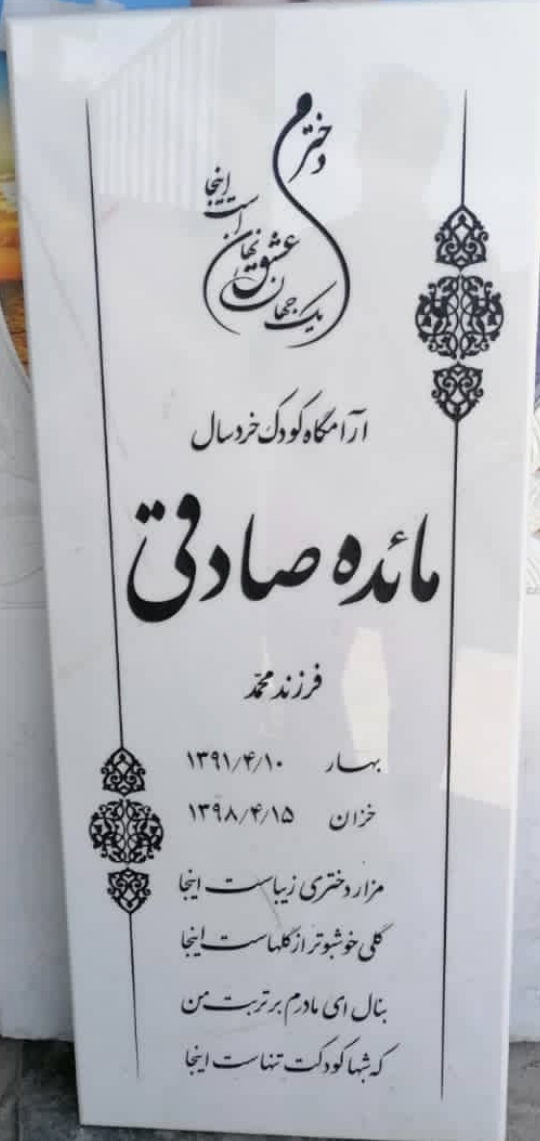 دخترم
یک جهان عشق نهان است اینجا
آرامگاه کودک خردسال
مائده صادقی
فرزند محمّد
بهار ۱۳۹۱/۴/۱۰
خزان ۱۳۹۸/۴/۱۵
مزار دختری زیباست اینجا
گلی خوشبوتر از گلهاست اینجا
بنال ای مادرم بر تربت من
که شبها کودکت تنهاست اینجا